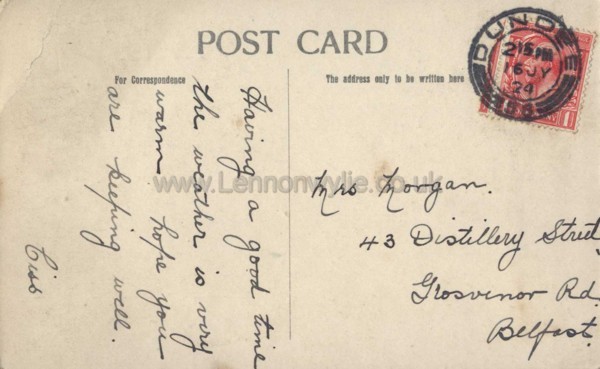 POST CARD
For Correspondence
The address only to be written here
DUNDEE
2 15 PM
16 JY
24
Having a good time
the weather is very
warm hope you
are keeping well.
Ciss
Mrs Morgan.
43 Distillery Street
Grosvenor Rd
Belfast.
www.Lennonwylie.co.uk